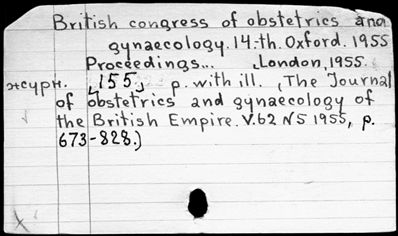 British congress of obstetrics and
gynaecology. 14-th. Oxford. 1955
Proceedings... London, 1955.
журн. 155 p. with ill. (The Journal
of obstetrics and gynaecology of
the British Empire. V.62 N5 1955, p.
673-828.)